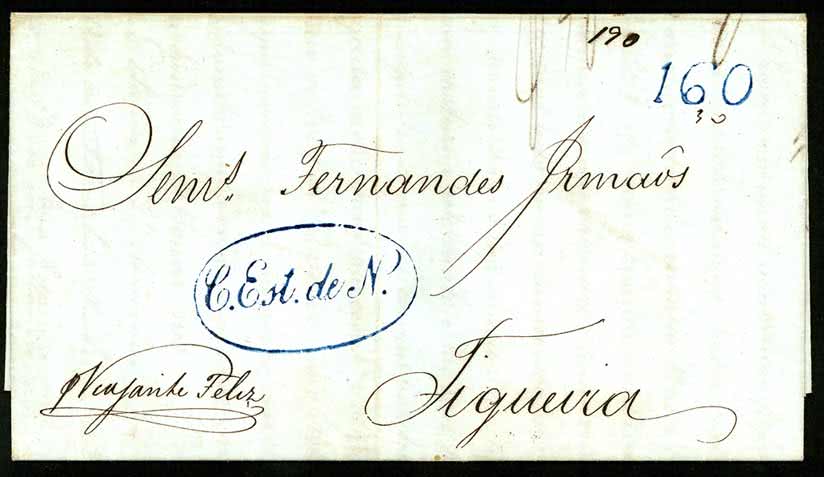 190
160
30
Senrs. Fernandes Irmaõs
C. Est. de N.
p Viajante Feliz
Figueira